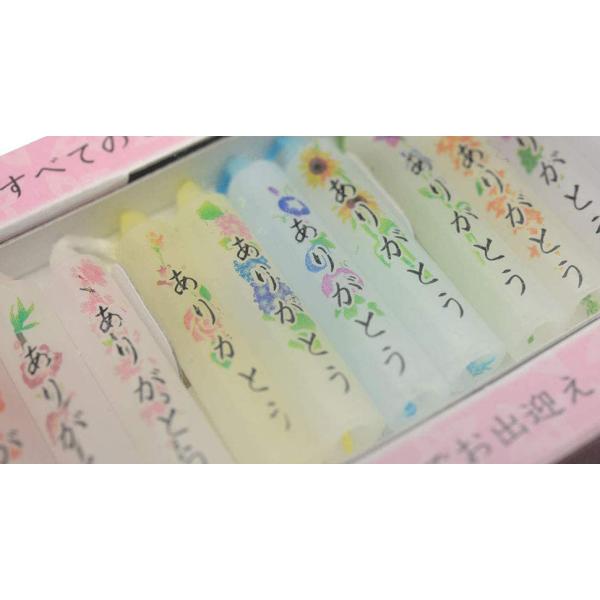 すべての
ありが
ありがとう
ありがとう
ありがとう
ありがとう
ありがとう
ありがとう
ありがとう
ありがとう
でお出迎え